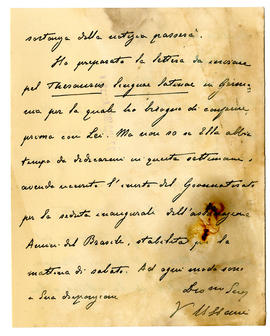 sostanza della notizia passerà.
Ho preparato la lettera da inviare
pel Thesaurus linguae latinae in Germa-
nia per la quale ho bisogno di conferire
prima con Lei. Ma non so se Ella abbia
tempo da dedicarmi in questa settimana,
avendo ricevuto l'invito del Governatorato
per la seduta inaugurale dell'associazione
Amici del Brasile, stabilita per la
mattina di sabato. Ad ogni modo sono
a Sua disposizione